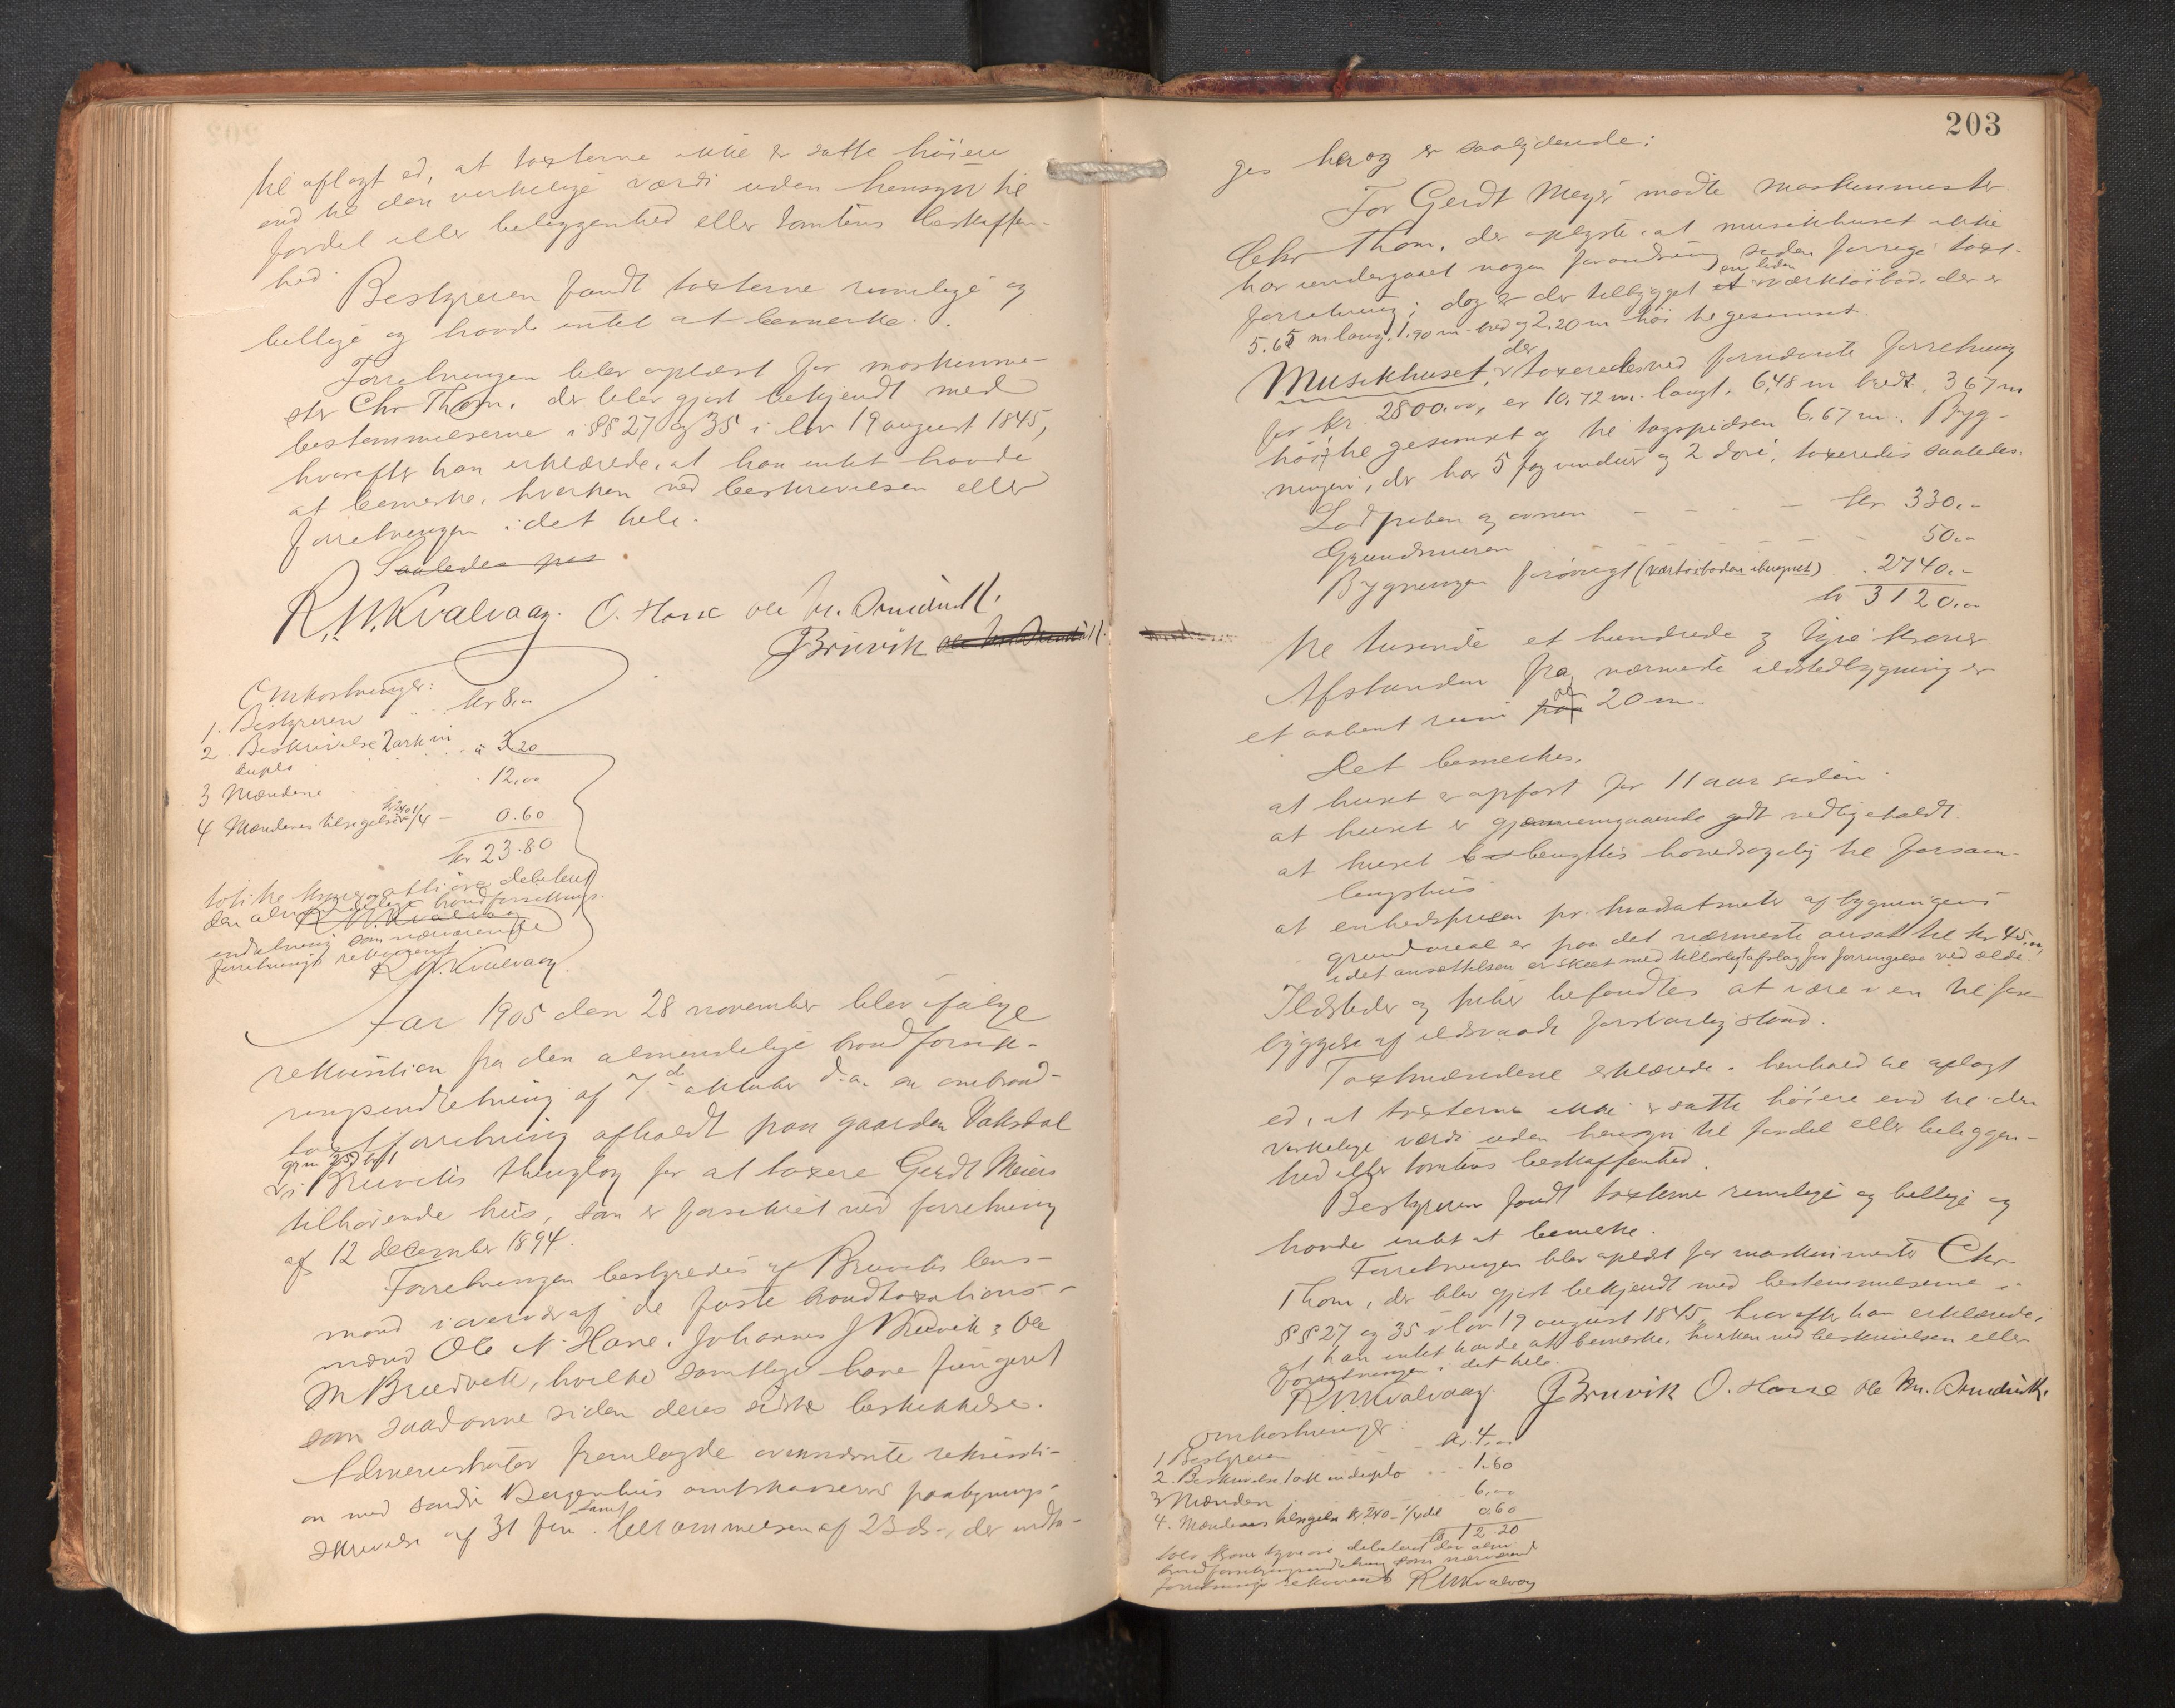 til aflagt ed, at taxterne ikke er satte höiere
end til den virkelige værdi uden hensyn til
fordel eller beliggenhed eller tomtens beskaffen-
hed
Bestyreren fandt taxterne rimelige og
billige og havde intet at bemerke.
Forretningen blev oplæst for maskinme-
ster Chr Thom, der blev gjort bekjendt med
bestemmelserne i §§ 27 og 35 i lov 19 august 1845,
hvorefter han erklærede, at han intet havde
at bemerke, hverken ved beskrivelsen eller
forretningen i det hele.
Saaledes pas
R.N.Kvalvaag. O. Hane Ole M.
J Bruvik
Omkostninger:
1. Bestyreren kr 8,00
2. Beskrivelse 2 ark in
duplo " 3.20
3 Mændene 12,00
4 Mændenes tilsigelse kr 2,40 1/4 – 0.60
kr 23.80
debiteret
den almindelige brandforsikrings-
R.N.Kvalvaag
indretning som nærværende
forretnings rekvirent
R.N.Kvalvaag
Aar 1905 den 28 november blev ifölge
rekvisition fra den almindelige brandforsik-
ringsindretning af 7de oktober d.a. en ombrand-
taxtforretning afholdt paa gaarden Vaksdal
i Bruviks thinglag for at taxere Gerdt Meiers
tilhörende hus, som er forsikret ved forretning
af 12 december 1894.
Forretningen bestyredes af Bruviks lens-
mand i overvær af de faste brandtaxations-
mænd Ole N. Hane, Johannes J Bruvik & Ole
M Bruvik, hvilke samtlige have fungeret
som saadanne siden deres sidste beskikkelse.
Administrator fremlagde ovennævnte rekvisiti-
on med söndre Bergenhus amtskasserers paategnings-
skrivelse af 31 samt af 23 ds., der indta-
203
ges her og er saalydende:
For Gerdt Meyer mödte maskinmester
Chr Thom, der oplyste, at musikhuset ikke
har undergaaet nogen forandring siden forrige taxt-
forretning; dog er der tilbygget et en liden værktöibod, der er
5.65 m lang, 1.90 m bred og 2.20 m höi til gesimset.
Musikhuset, der taxeredes ved fornævnte forretning
for kr. 2800,00, er 10.72 m. langt, 6.48 m bredt, 3.67 m
höit til gesimset og til tagspidsen 6.67 m. Byg-
ningen, der har 5 fag vinduer og 2 döre, taxeredes saaledes:
Lad piben og ovnen kr 330,–
Grundmuren 50,–
Bygningen forövrigt (værktöiboden iberegnet) 2740,–
kr 3120,00
tre tusinde et hundrede og tyve kroner
Afstanden fra nærmeste ildstedbygning er
et aabent rum paa af 20 m.
Det bemerkes,
at huset er opfört for 11 aar siden.
at huset er gjennemgaaende godt vedligeholdt.
at huset benyttes hovedsagelig til forsam-
lingshus
at enhedsprisen pr. kvadratmeter af bygningens
grundareal er paa det nærmeste ansat til kr 45,00,
idet ansættelsen er skeet med tilbörligt afslag for forringelse ved ælde.
Ildsteder og piber befandtes at være i en til fore-
byggelse af ildsvaade forsvarlig stand.
Taxtmændene erklærede i henhold til aflagt
ed, at taxterne ikke er satte höiere end til den
virkelige værdi uden hensyn til fordel eller beliggen-
hed eller tomtens beskaffenhed.
Bestyreren fandt taxterne rimelige og billige og
havde intet at bemerke.
Forretningen blev oplæst for maskinmester Chr.
Thom, der blev gjort bekjendt med bestemmelserne i
§§ 27 og 35 i lov 19 august 1845, hvorefter han erklærede,
at han intet havde at bemerke, hverken ved beskrivelsen eller
forretningen i det hele.
R.N.Kvalvaag. J Bruvik O. Hane Ole M.
Omkostninger:
1 Bestyreren kr. 4,00
2. Beskrivelse 1 ark in duplo 1.60
3 Mændene 6,00
4. Mændenes tilsigelse kr 2.40 – 1/4 del 0.60
kr 12.20
tolv kroner tyve öre debiteret den alm
brandforsikringsindretning som nærværende
forretnings rekvirent R N Kvalvaag